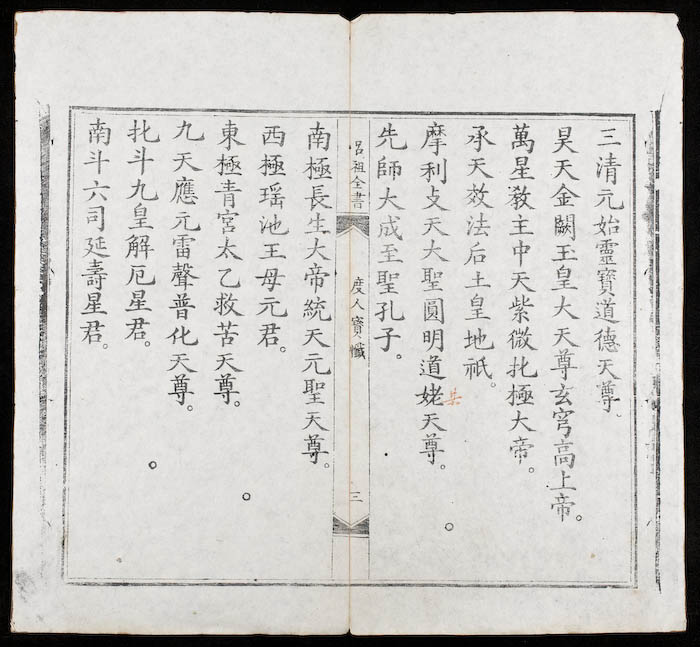 三清元始靈寶道德天尊。
昊天金闕玉皇大天尊玄穹高上帝。
萬星教主中天紫微北極大帝。
承天效法后土皇地祇。
摩利攴天大聖圓明道姥天尊。
先師大成至聖孔子。
呂祖全書
度人寶懺
三
南極長生大帝統天元聖天尊。
西極瑶池王母元君。
東極青宮太乙救苦天尊。
九天應元雷聲普化天尊。
北斗九皇解厄星君。
南斗六司延壽星君。